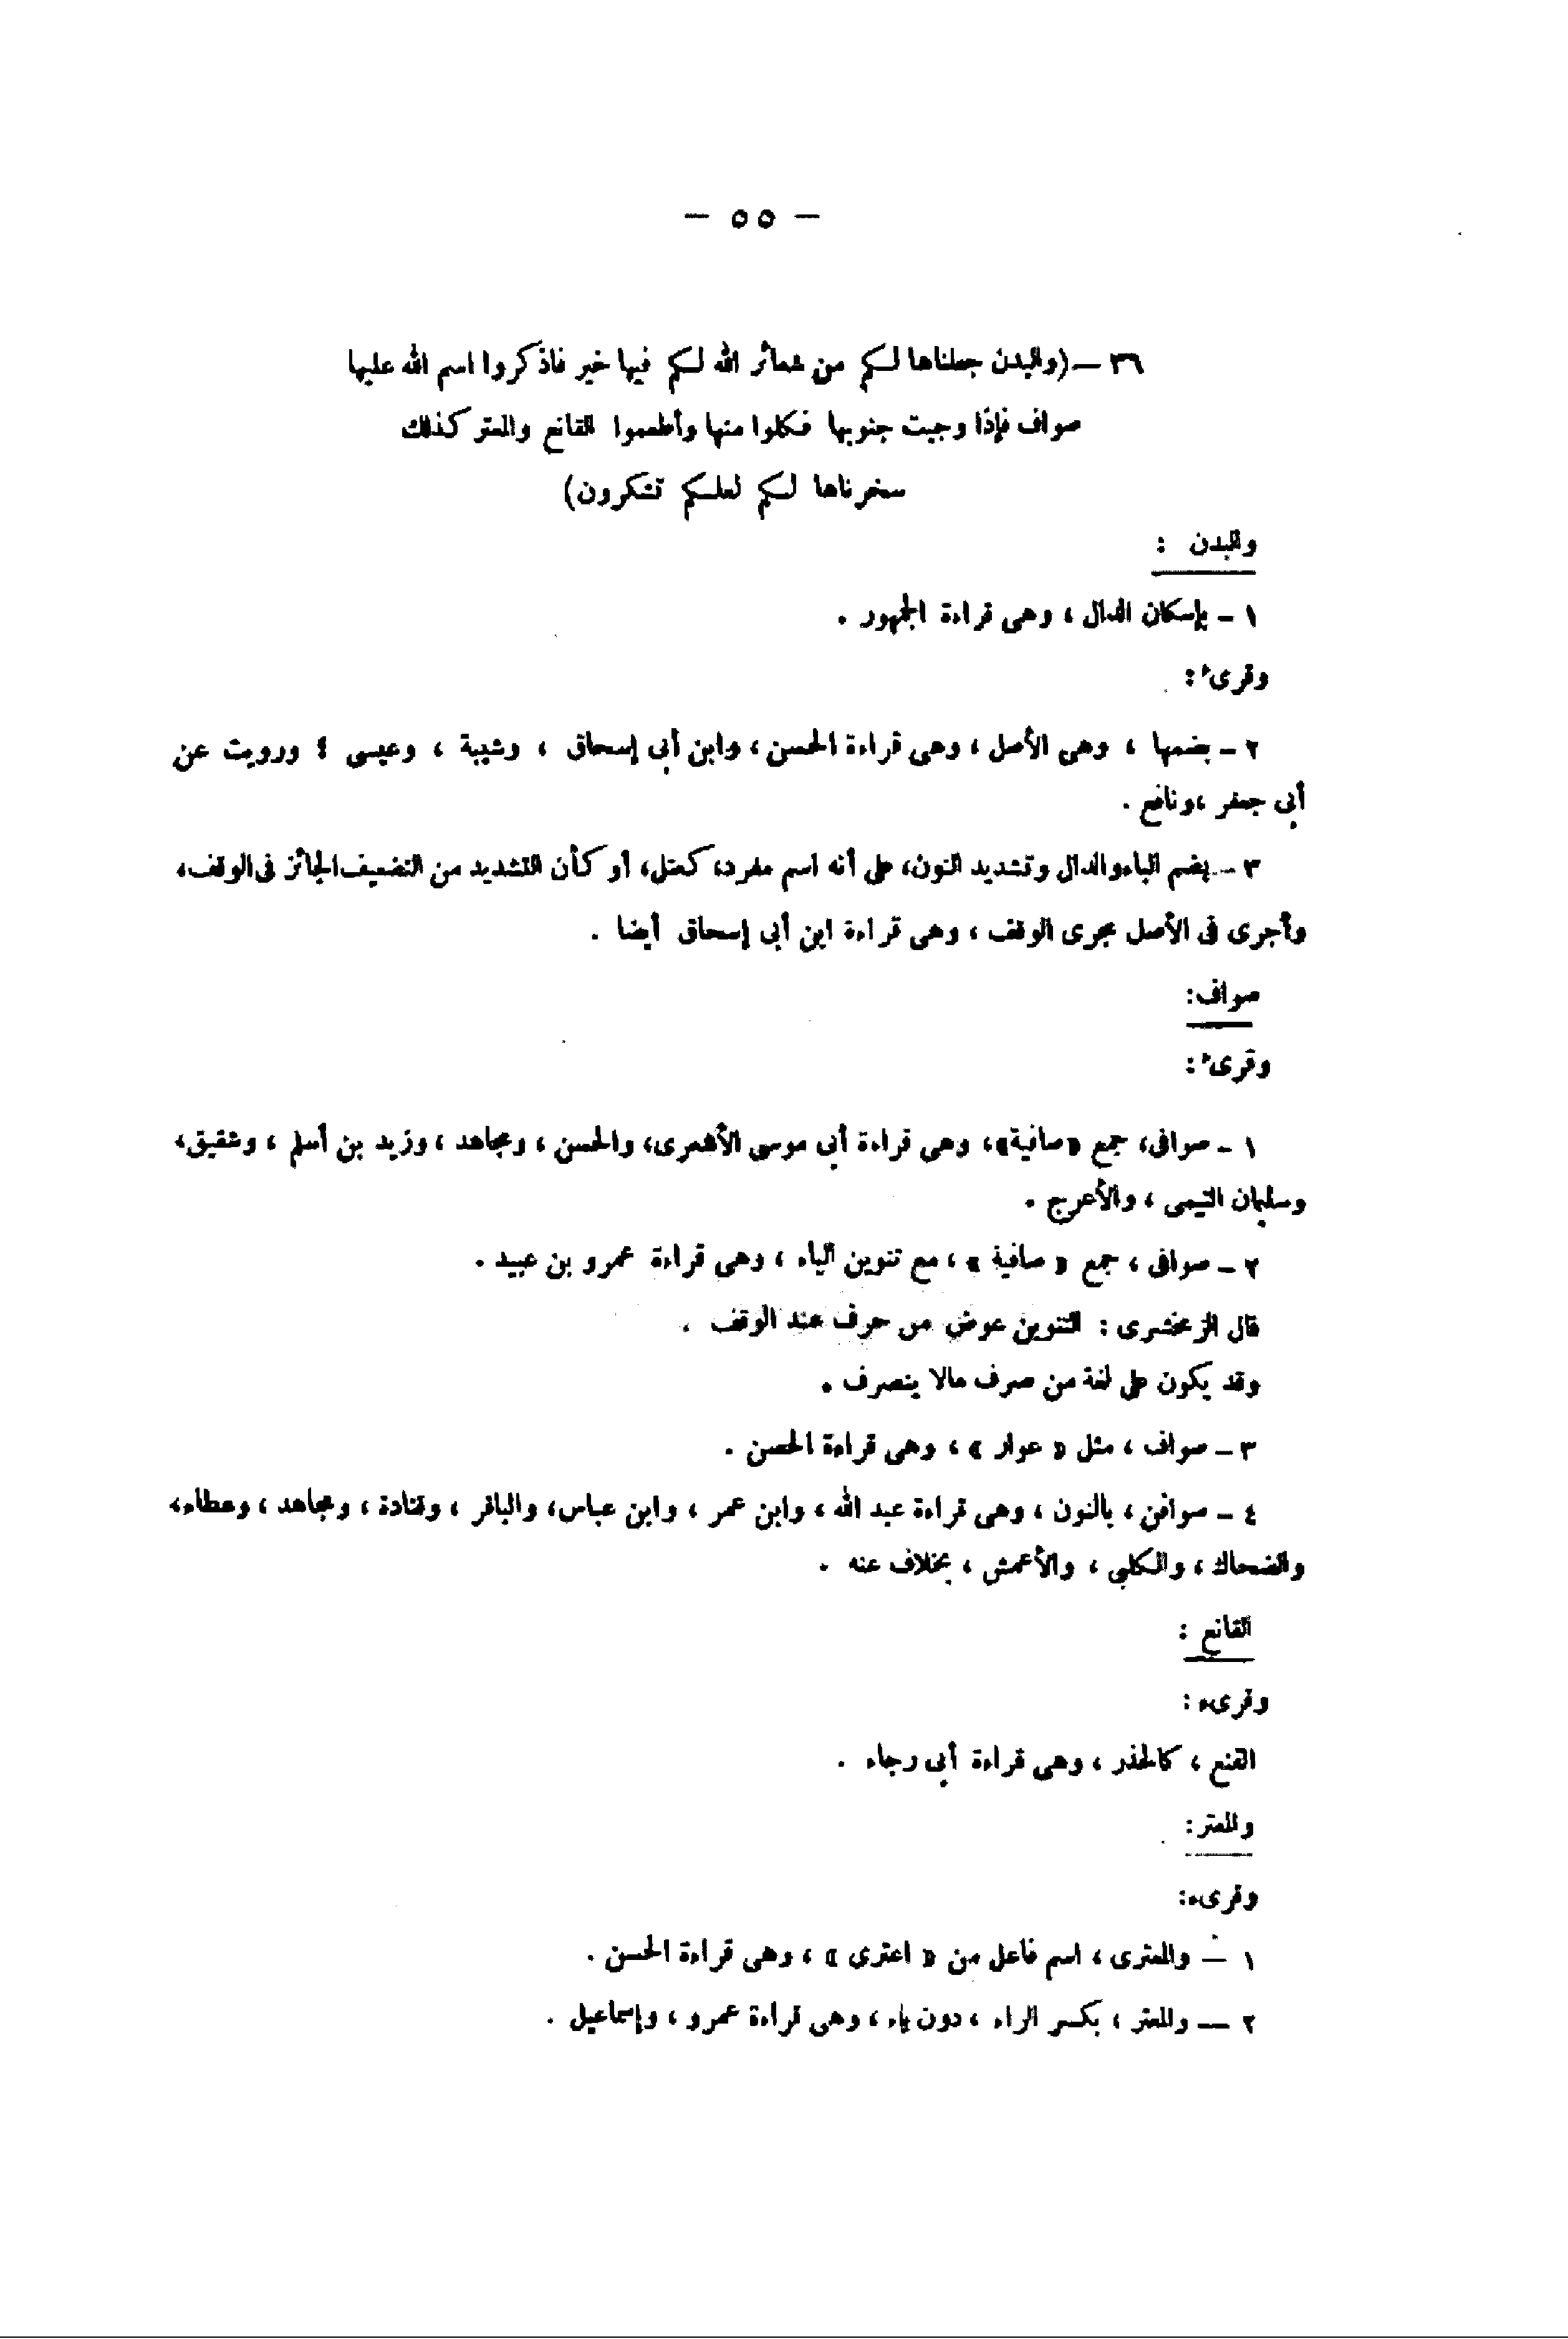 — ٥٥ —
٣٦ — (والبدن جعلناها لكم من شعائر الله لكم فيها خير فاذكروا اسم الله عليها
صواف فإذا وجبت جنوبها فكلوا منها وأطعموا القانع والمعتر كذلك
سخرناها لكم لعلكم تشكرون)
والبدن :
١ - بإسكان الدال ، وهى قراءة الجمهور .
وقرىء :
٢ - بضمها ، وهى الأصل ، وهى قراءة الحسن ، وابن أبى إسحاق ، وشيبة ، وعيسى ؛ ورويت عن
أبى جعفر ، ونافع .
٣ - بضم الباء والدال وتشديد النون، على أنه اسم مفرد، كعتل، أو كأن التشديد من التضعيف الجائز فى الوقف،
وأجرى فى الأصل مجرى الوقف ، وهى قراءة ابن أبى إسحاق أيضا .
صواف:
وقرىء :
١ - صوافى، جمع «صافية»، وهى قراءة أبى موسى الأشعرى، والحسن ، ومجاهد ، وزيد بن أسلم ، وشقيق،
وسليمان التيمى ، والأعرج .
٢ - صوافى ، جمع « صافية » ، مع تنوين الياء ، وهى قراءة عمرو بن عبيد .
قال الزمخشرى : التنوين عوض من حرف عند الوقف .
وقد يكون على لغة من صرف مالا ينصرف .
٣ - صواف ، مثل « عوار » ، وهى قراءة الحسن .
٤ - صوافن ، بالنون ، وهى قراءة عبد الله ، وابن عمر ، وابن عباس، والباقر ، وقتادة ، ومجاهد ، وعطاء،
والضحاك ، والكلبى ، والأعمش ، بخلاف عنه .
القانع :
وقرىء :
القنع ، كالحذر ، وهى قراءة أبى رجاء .
والمعتر:
وقرىء:
١ — والمعترى ، اسم فاعل من « اعترى » ، وهى قراءة الحسن .
٢ — والمعتر ، بكسر الراء ، دون ياء ، وهى قراءة عمرو ، وإسماعيل .